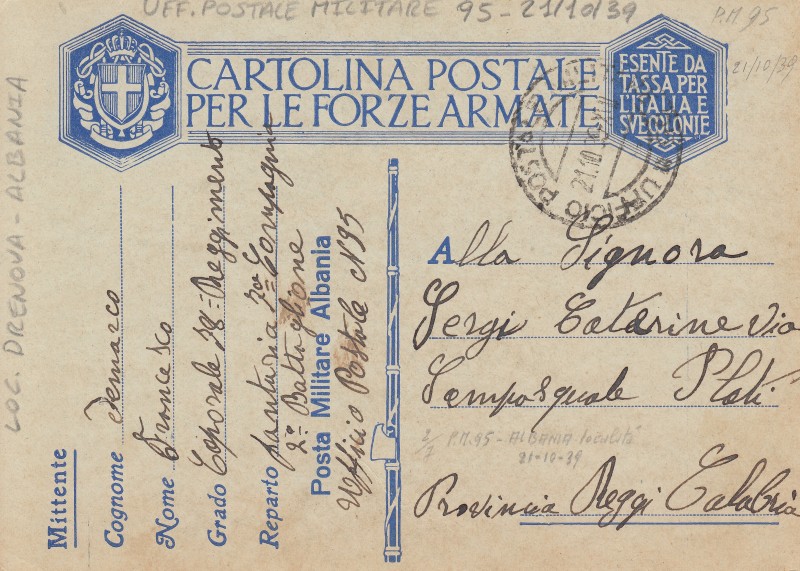 UFF. POSTALE MILITARE 95 - 21/10/39
P.M. 95
21/10/39
LOC. DRENOVA - ALBANIA
CARTOLINA POSTALE
PER LE FORZE ARMATE
ESENTE DA
TASSA PER
L'ITALIA E
SVE COLONIE
UFFICIO POSTALE
21.10.39
Mittente
Cognome Demarco
Nome Francesco
Grado Caporale 38º Reggimento
Reparto fanteria 7ª Compagnia
2º Battaglione
Posta Militare Albania
Ufficio Postale N 95
Alla Signora
Sergi Catarine Via
Sampasquale Platì
2/7 P.M. 95 - ALBANIA località
21-10-39
Provincia Reggi Calabria